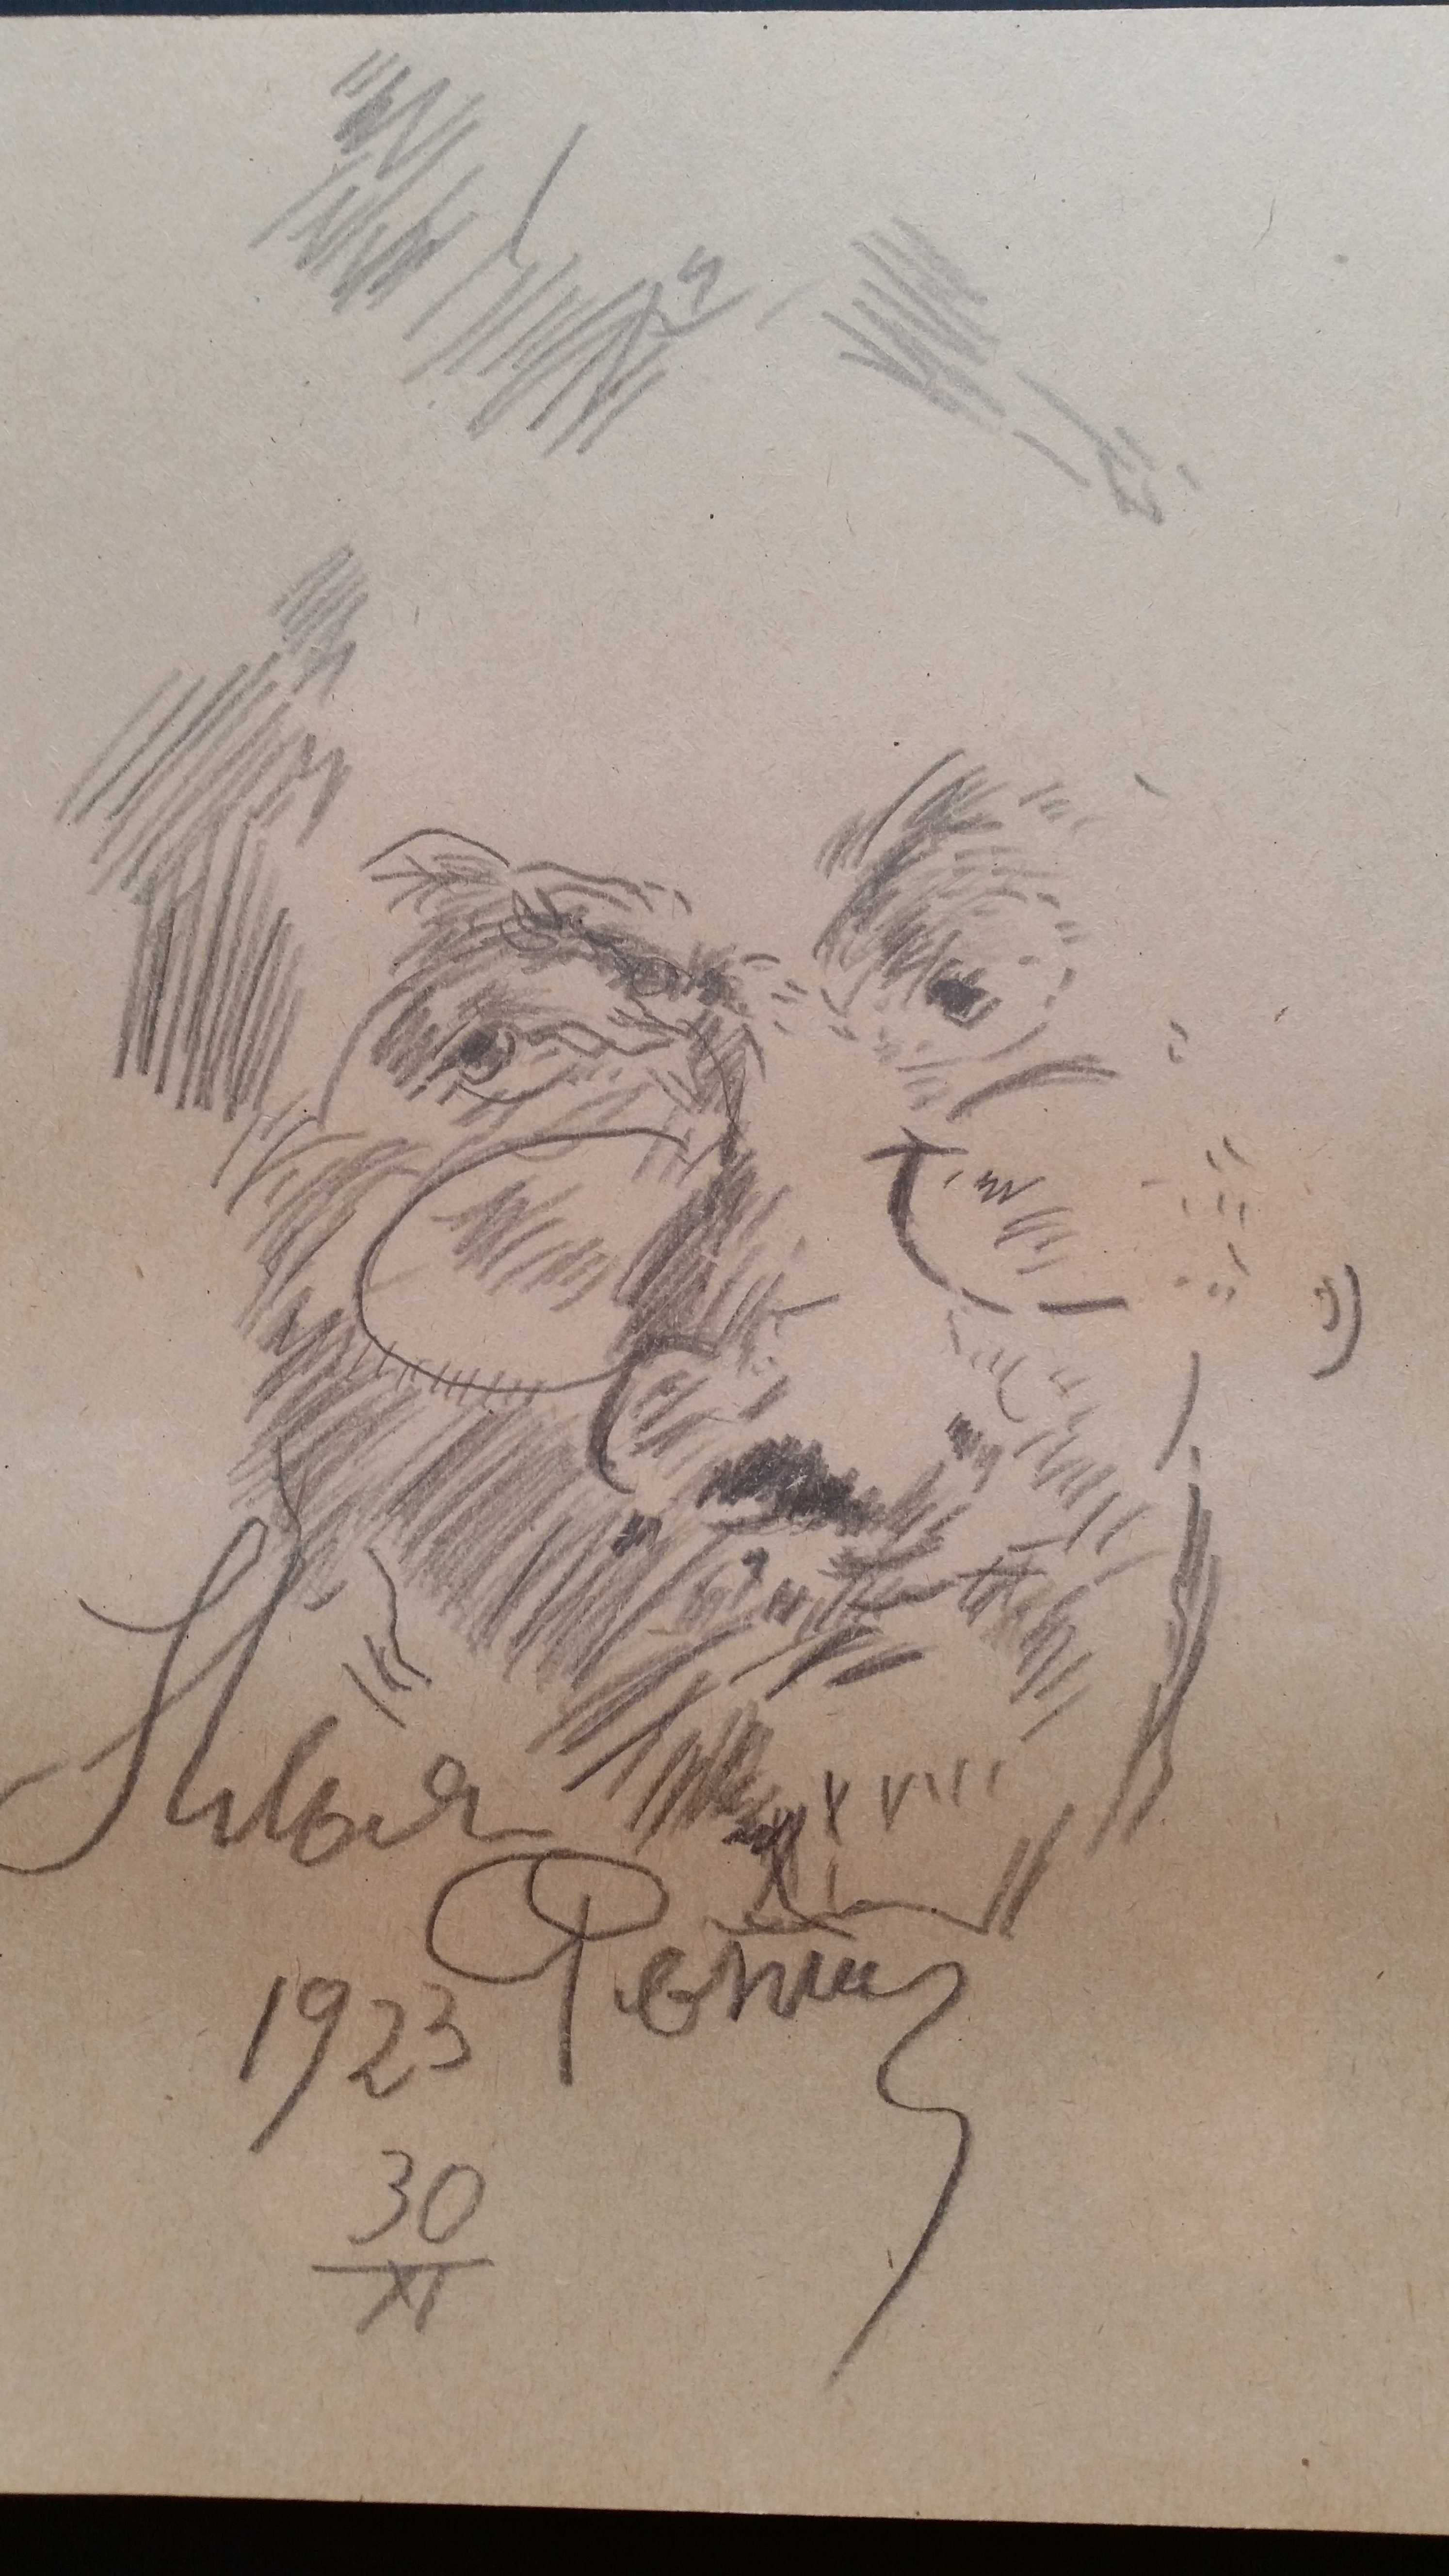 Илья
Репин
1923
30
XI